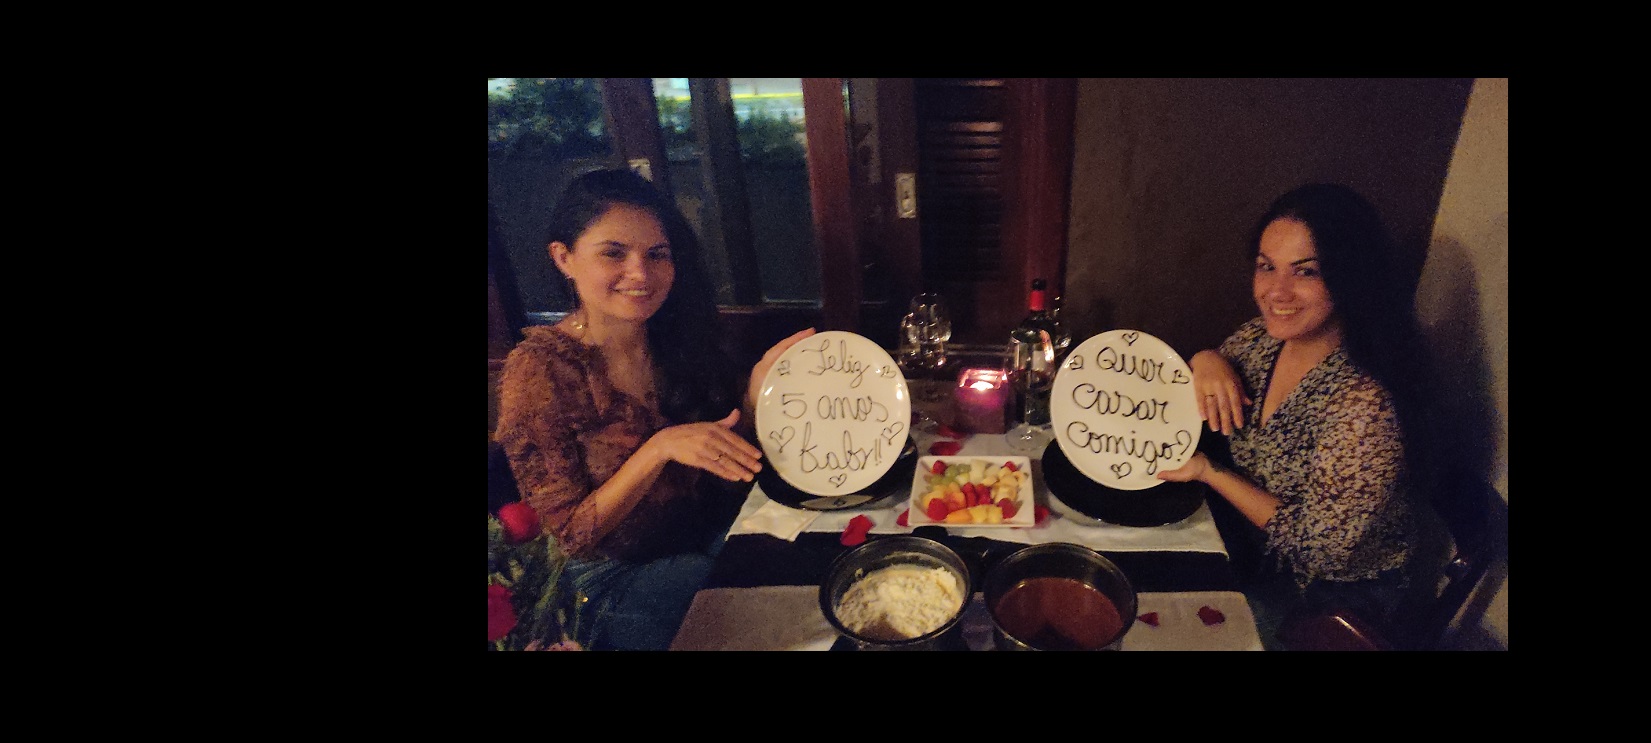 Feliz
5 anos
baby!!
Quer
Casar
Comigo?